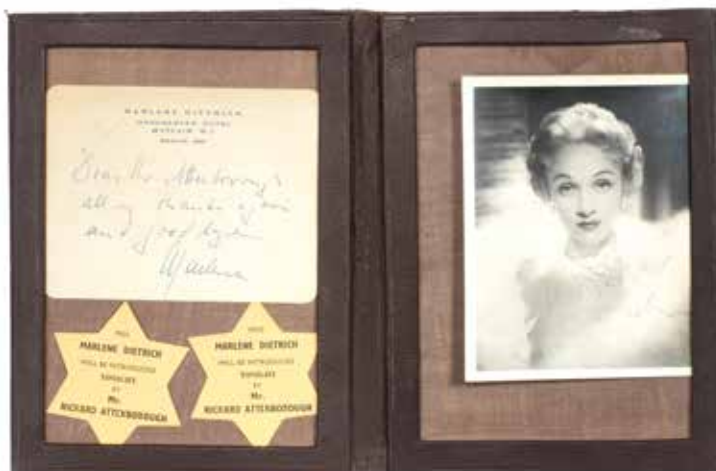 MARLENE DIETRICH
DORCHESTER HOTEL
MAYFAIR W.1
Dear Mr. Attenborough
all my thanks again
and good bye
Marlene
MISS
MARLENE DIETRICH
WILL BE INTRODUCED
TONIGHT
BY
Mr.
RICHARD ATTENBOROUGH
MISS
MARLENE DIETRICH
WILL BE INTRODUCED
TONIGHT
BY
Mr.
RICHARD ATTENBOROUGH